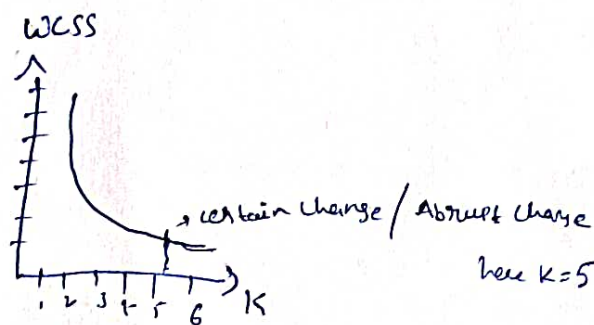 WCSS
→ certain change / Abrupt change
here K=5
1 2 3 4 5 6 K